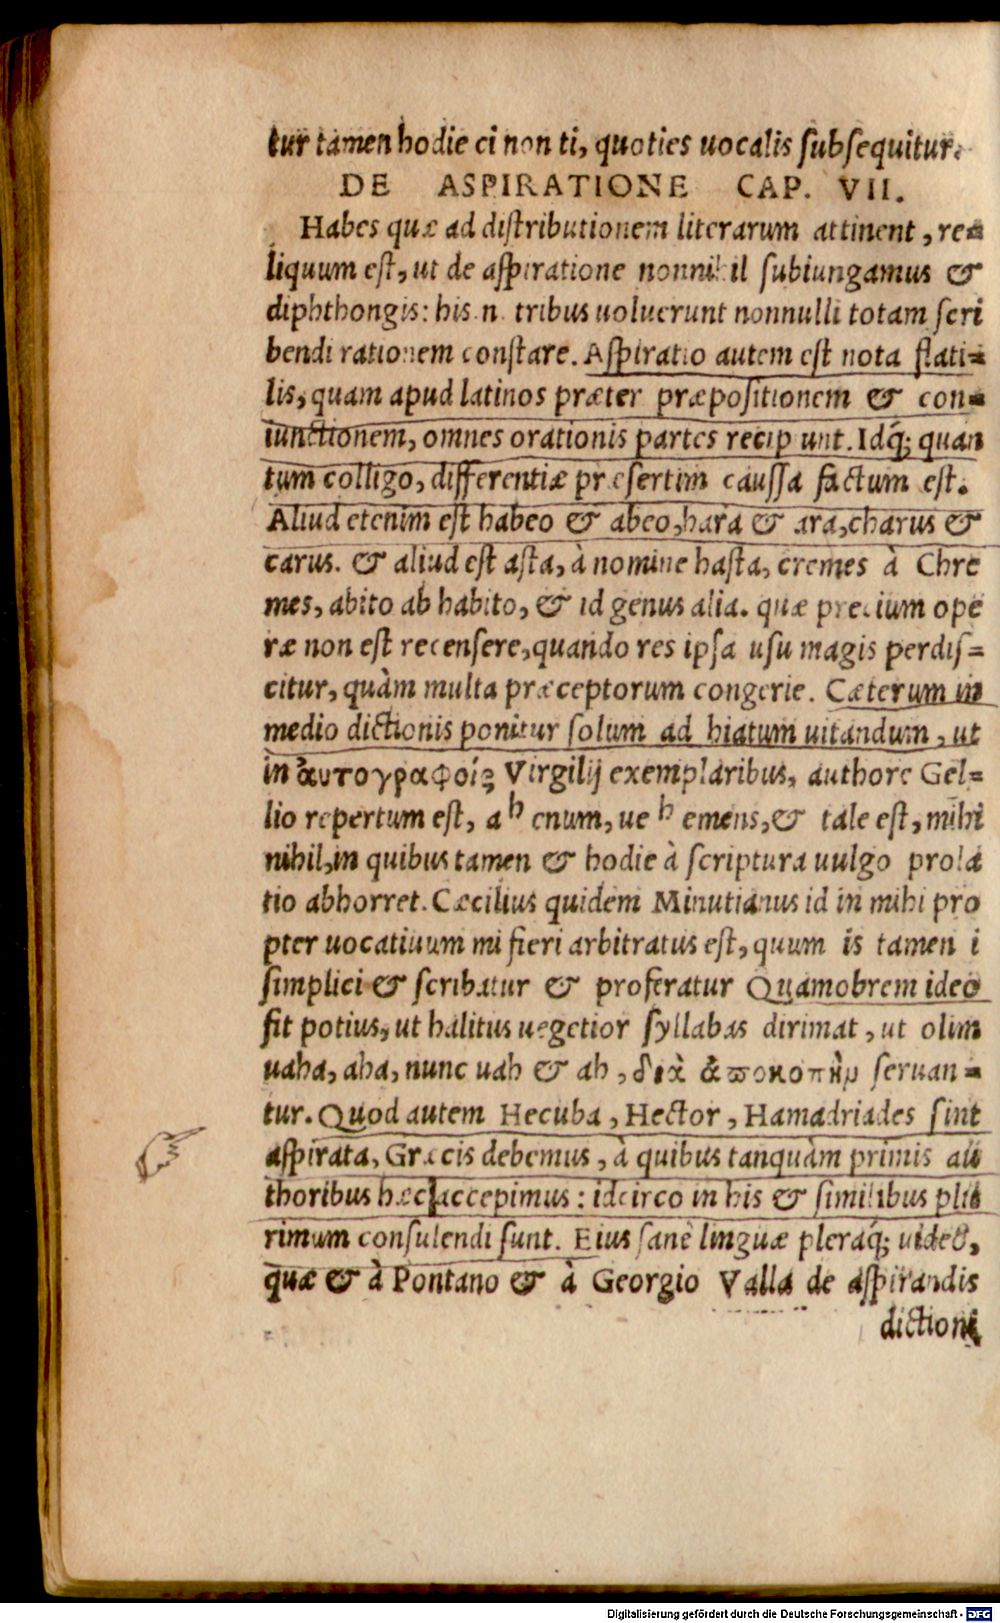 tur tamen hodie ci non ti, quoties uocalis subsequitur.
DE ASPIRATIONE CAP. VII.
Habes quæ ad distributionem literarum attinent, re=
liquum est, ut de aspiratione nonnihil subiungamus &
diphthongis: his.n. tribus uoluerunt nonnulli totam scri
bendi rationem constare. Aspiratio autem est nota flati=
lis, quam apud latinos præter præpositionem & con=
iunctionem, omnes orationis partes recipiunt. Idq́; quan
tum colligo, differentiæ præsertim caussa factum est.
Aliud etenim est habeo & abeo, hara & ara, charus &
carus. & aliud est asta, à nomine hasta, cremes à Chre
mes, abito ab habito, & id genus alia. quæ precium ope
ræ non est recensere, quando res ipsa usu magis perdis=
citur, quàm multa præceptorum congerie. Cæterum in
medio dictionis ponitur solum ad hiatum uitandum, ut
in ἀυτογραφοίς Virgilij exemplaribus, authore Gel=
lio repertum est, a h enum, ue h emens, & tale est, mihi
nihil, in quibus tamen & hodie à scriptura uulgo prola
tio abhorret. Cæcilius quidem Minutianus id in mihi pro
pter uocatiuum mi fieri arbitratus est, quum is tamen i
simplici & scribatur & proferatur Quamobrem ideo
fit potius, ut halitus uegetior syllabas dirimat, ut olim
uaha, aha, nunc uah & ah, διὰ ἀποκοπὴν seruan=
tur. Quod autem Hecuba, Hector, Hamadriades sint
aspirata, Græcis debemus, à quibus tanquàm primis au
thoribus hæc accepimus: idcirco in his & similibus plu
rimum consulendi sunt. Eius sanè linguæ pleraq́; uidet,
quæ & à Pontano & à Georgio Valla de aspirandis
dictioni
Digitalisierung gefördert durch die Deutsche Forschungsgemeinschaft - DFG